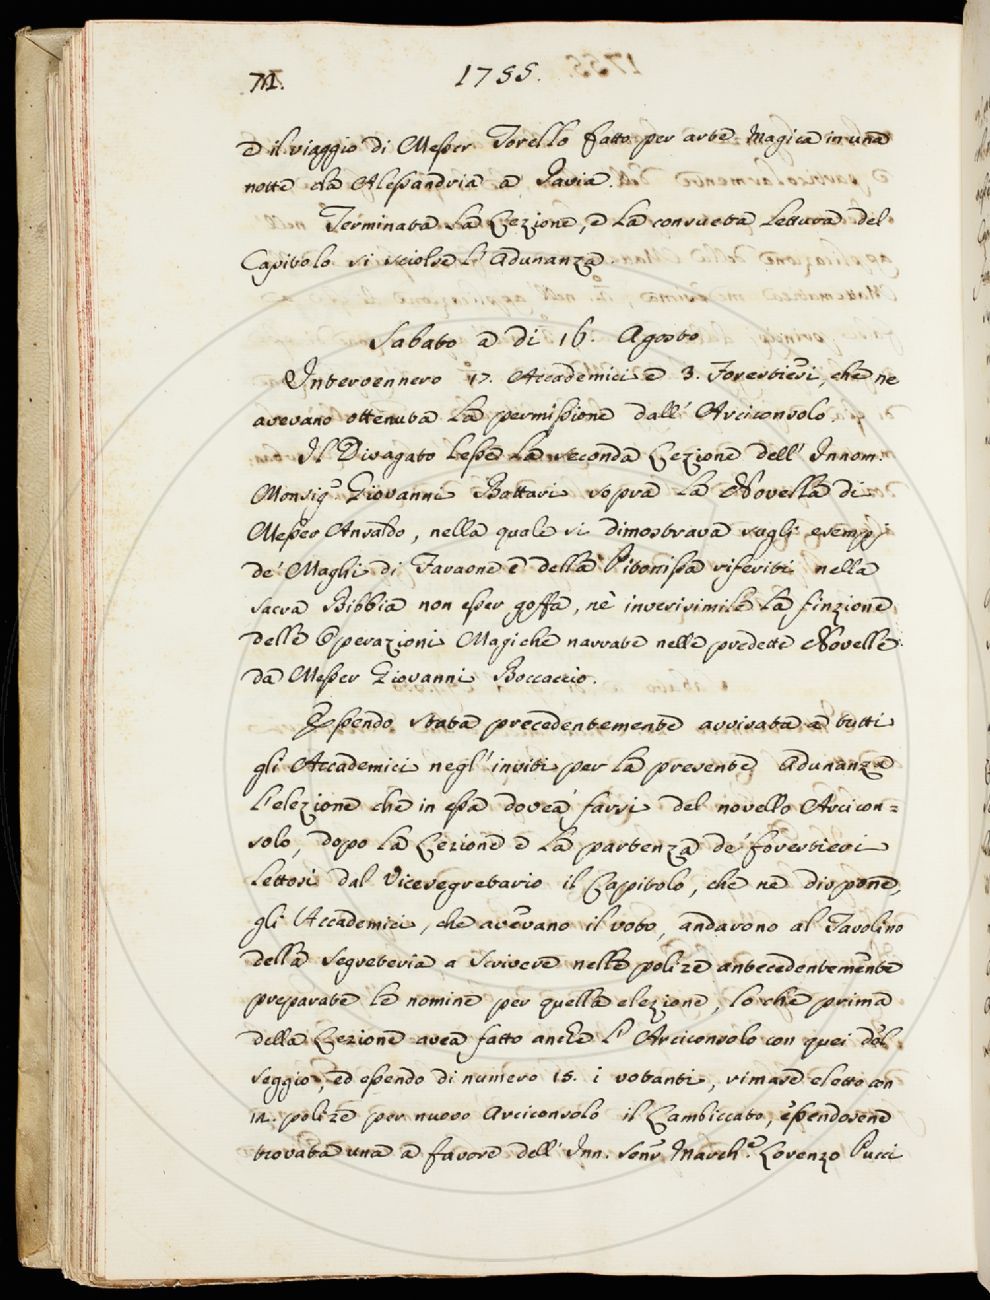 71. 1755.
e il viaggio di Messer Torello fatto per arte Magica in una
notte da Alessandria a Pavia.
Terminata la Lezione, e la consueta Lettura del
Capitolo si sciolse l'Adunanza.
Sabato a di 16. Agosto
Intervennero 17. Accademici e 3. Forestieri, che ne
avevano ottenuta la permissione dall' Arciconsolo.
Il Divagato lesse la seconda Lezione dell' Innom.
Monsig.r Giovanni Bottari sopra la Novella di
Messer Ansaldo, nella quale si dimostrava sugli esempj
de' Maghi di Faraone e della Pitonissa riferiti nella
sacra Bibbia non esser goffa, nè inverisimile la finzione
delle Operazioni Magiche narrate nelle predette Novelle
da Messer Giovanni Boccaccio.
Essendo stata precedentemente avvisata a tutti
gli Accademici negl' inviti per la presente Adunanza
l'elezione che in essa dovea farsi del novello Arcicon=
solo, dopo la Lezione e la partenza de' forestieri
lettosi dal Vicesegretario il Capitolo, che ne dispone,
gli Accademici, che avevano il voto, andarono al Tavolino
della Segreteria a scrivere nelle polize antecedentemente
preparate le nomine per quella elezione, lo che prima
della Lezione avea fatto anche l'Arciconsolo con quei del
seggio, ed essendo di numero 15. i votanti, rimase eletto con
14. polize per nuovo Arciconsolo il Lambiccato, essendosene
trovata una a favore dell' Inn. Sen.r March.e Lorenzo Pucci